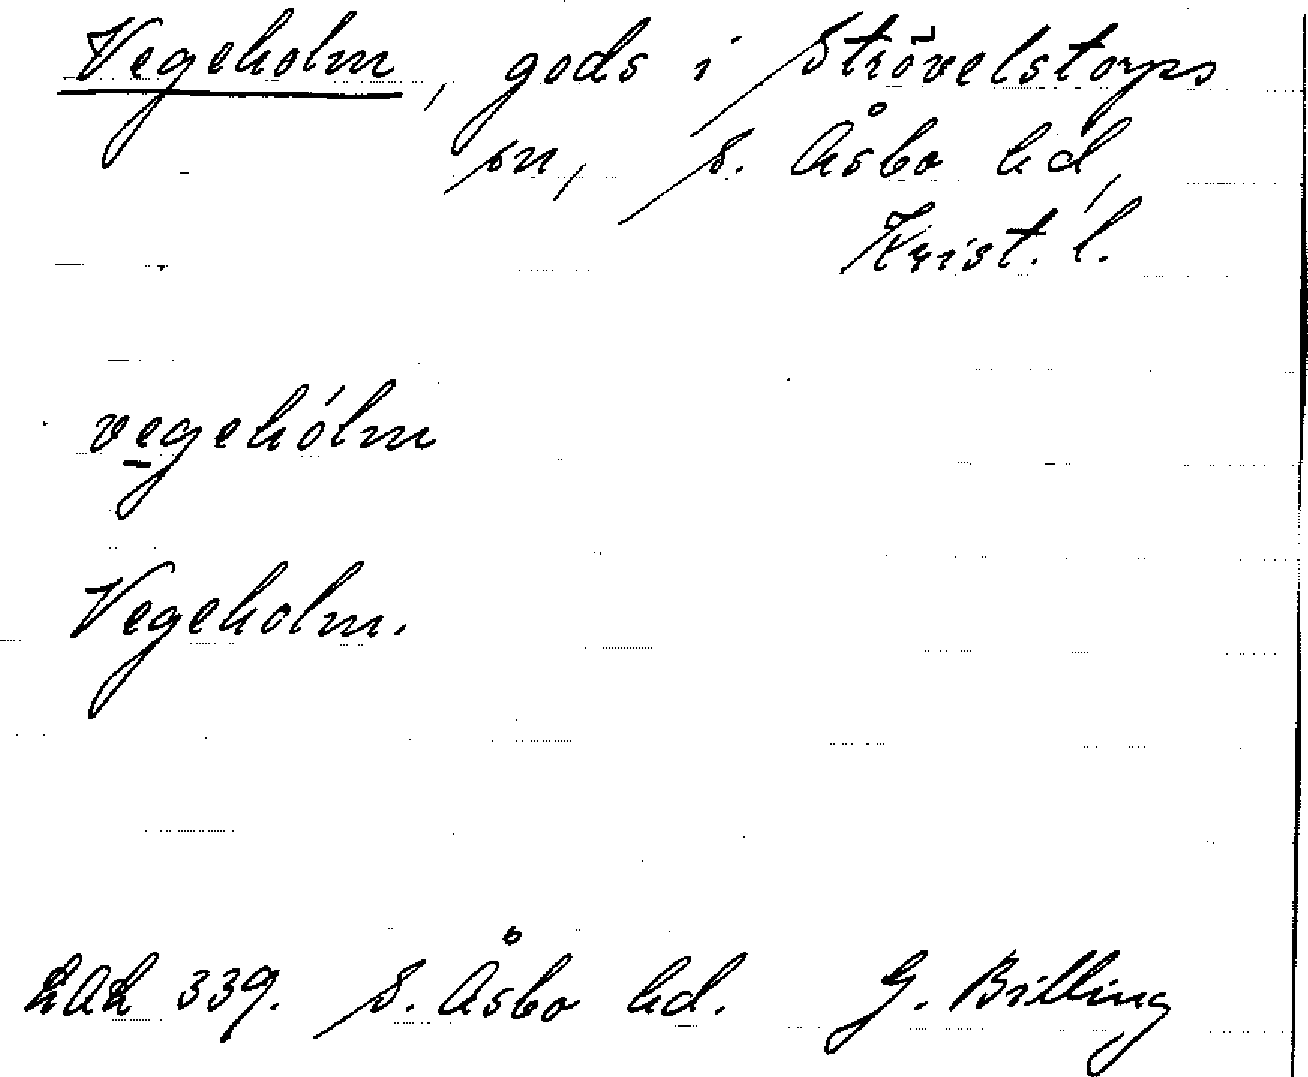 Vegeholm, gods i Strövelstorps
sn, S. Åsbo hd,
Krist. l.
vegehólm
Vegeholm.
LAL 339. S. Åsbo hd. G. Billing